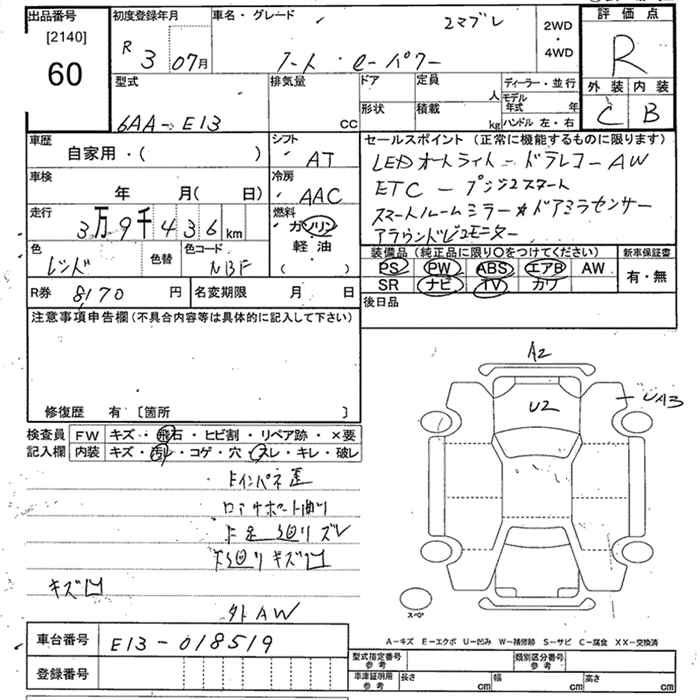 出品番号 初度登録年月 車名・グレード 評価点
[2140] R 3 07月 2WD・4WD R
60 外装 内装
型式 排気量 ドア 定員 ディーラー・並行 C B
6AA-E13 cc 形状 積載 人 モデル年式 年
kg ハンドル 左・右
車歴 シフト セールスポイント (正常に機能するものに限ります)
自家用・( ) AT LEDオートライト ドラレコ AW
車検 冷房 ETC プッシュスタート
年 月( 日) AAC スマートルームミラー ドアミラセンサー
走行 3万9千436km 燃料 ガソリン アラウンドビューモニター
軽油
( )
色 色替 色コード 装備品 (純正品に限り〇をつけてください) 新車保証書
レッド NBF PS PW ABS エアB AW 有・無
SR ナビ TV カワ
R券 8170 円 名変期限 月 日 後日品
注意事項申告欄 (不具合内容等は具体的に記入して下さい)
A2
U2 UA3
修復歴 有 [箇所 ]
検査員 FW キズ・飛石・ヒビ割・リペア跡・×要
記入欄 内装 キズ・汚レ・コゲ・穴・スレ・キレ・破レ
インパネ
キズ凹
外AW
スペア
A-キズ E-エクボ U-凹み W-補修跡 S-サビ C-腐食 XX-交換済
車台番号 E13-018519
型式指定番号 参考 類別区分番号 参考
登録番号 車庫証明用 参考 長さ cm 幅 cm 高さ cm